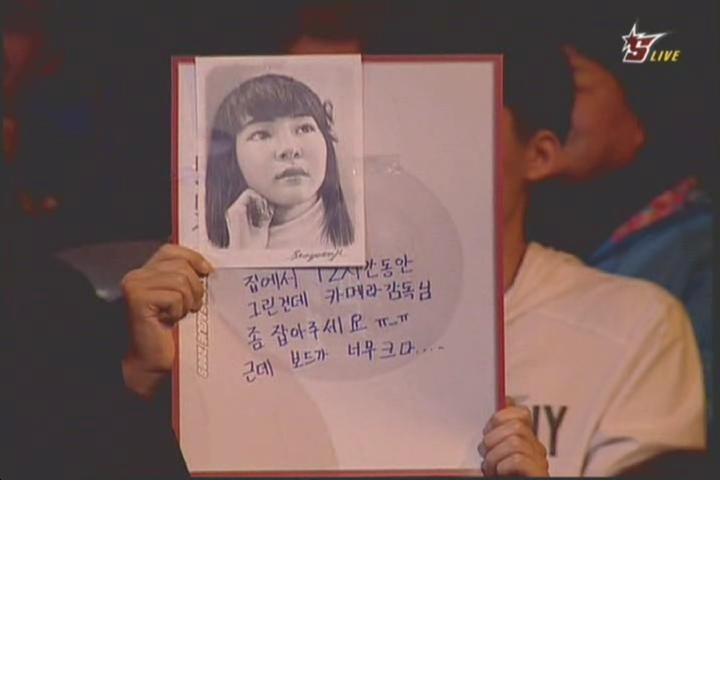 S LIVE
Seoyeonji
집에서 12시간동안
그린건데 카메라감독님
좀 잡아주세요 ㅠ_ㅠ
근데 보드가 너무크다....
NY